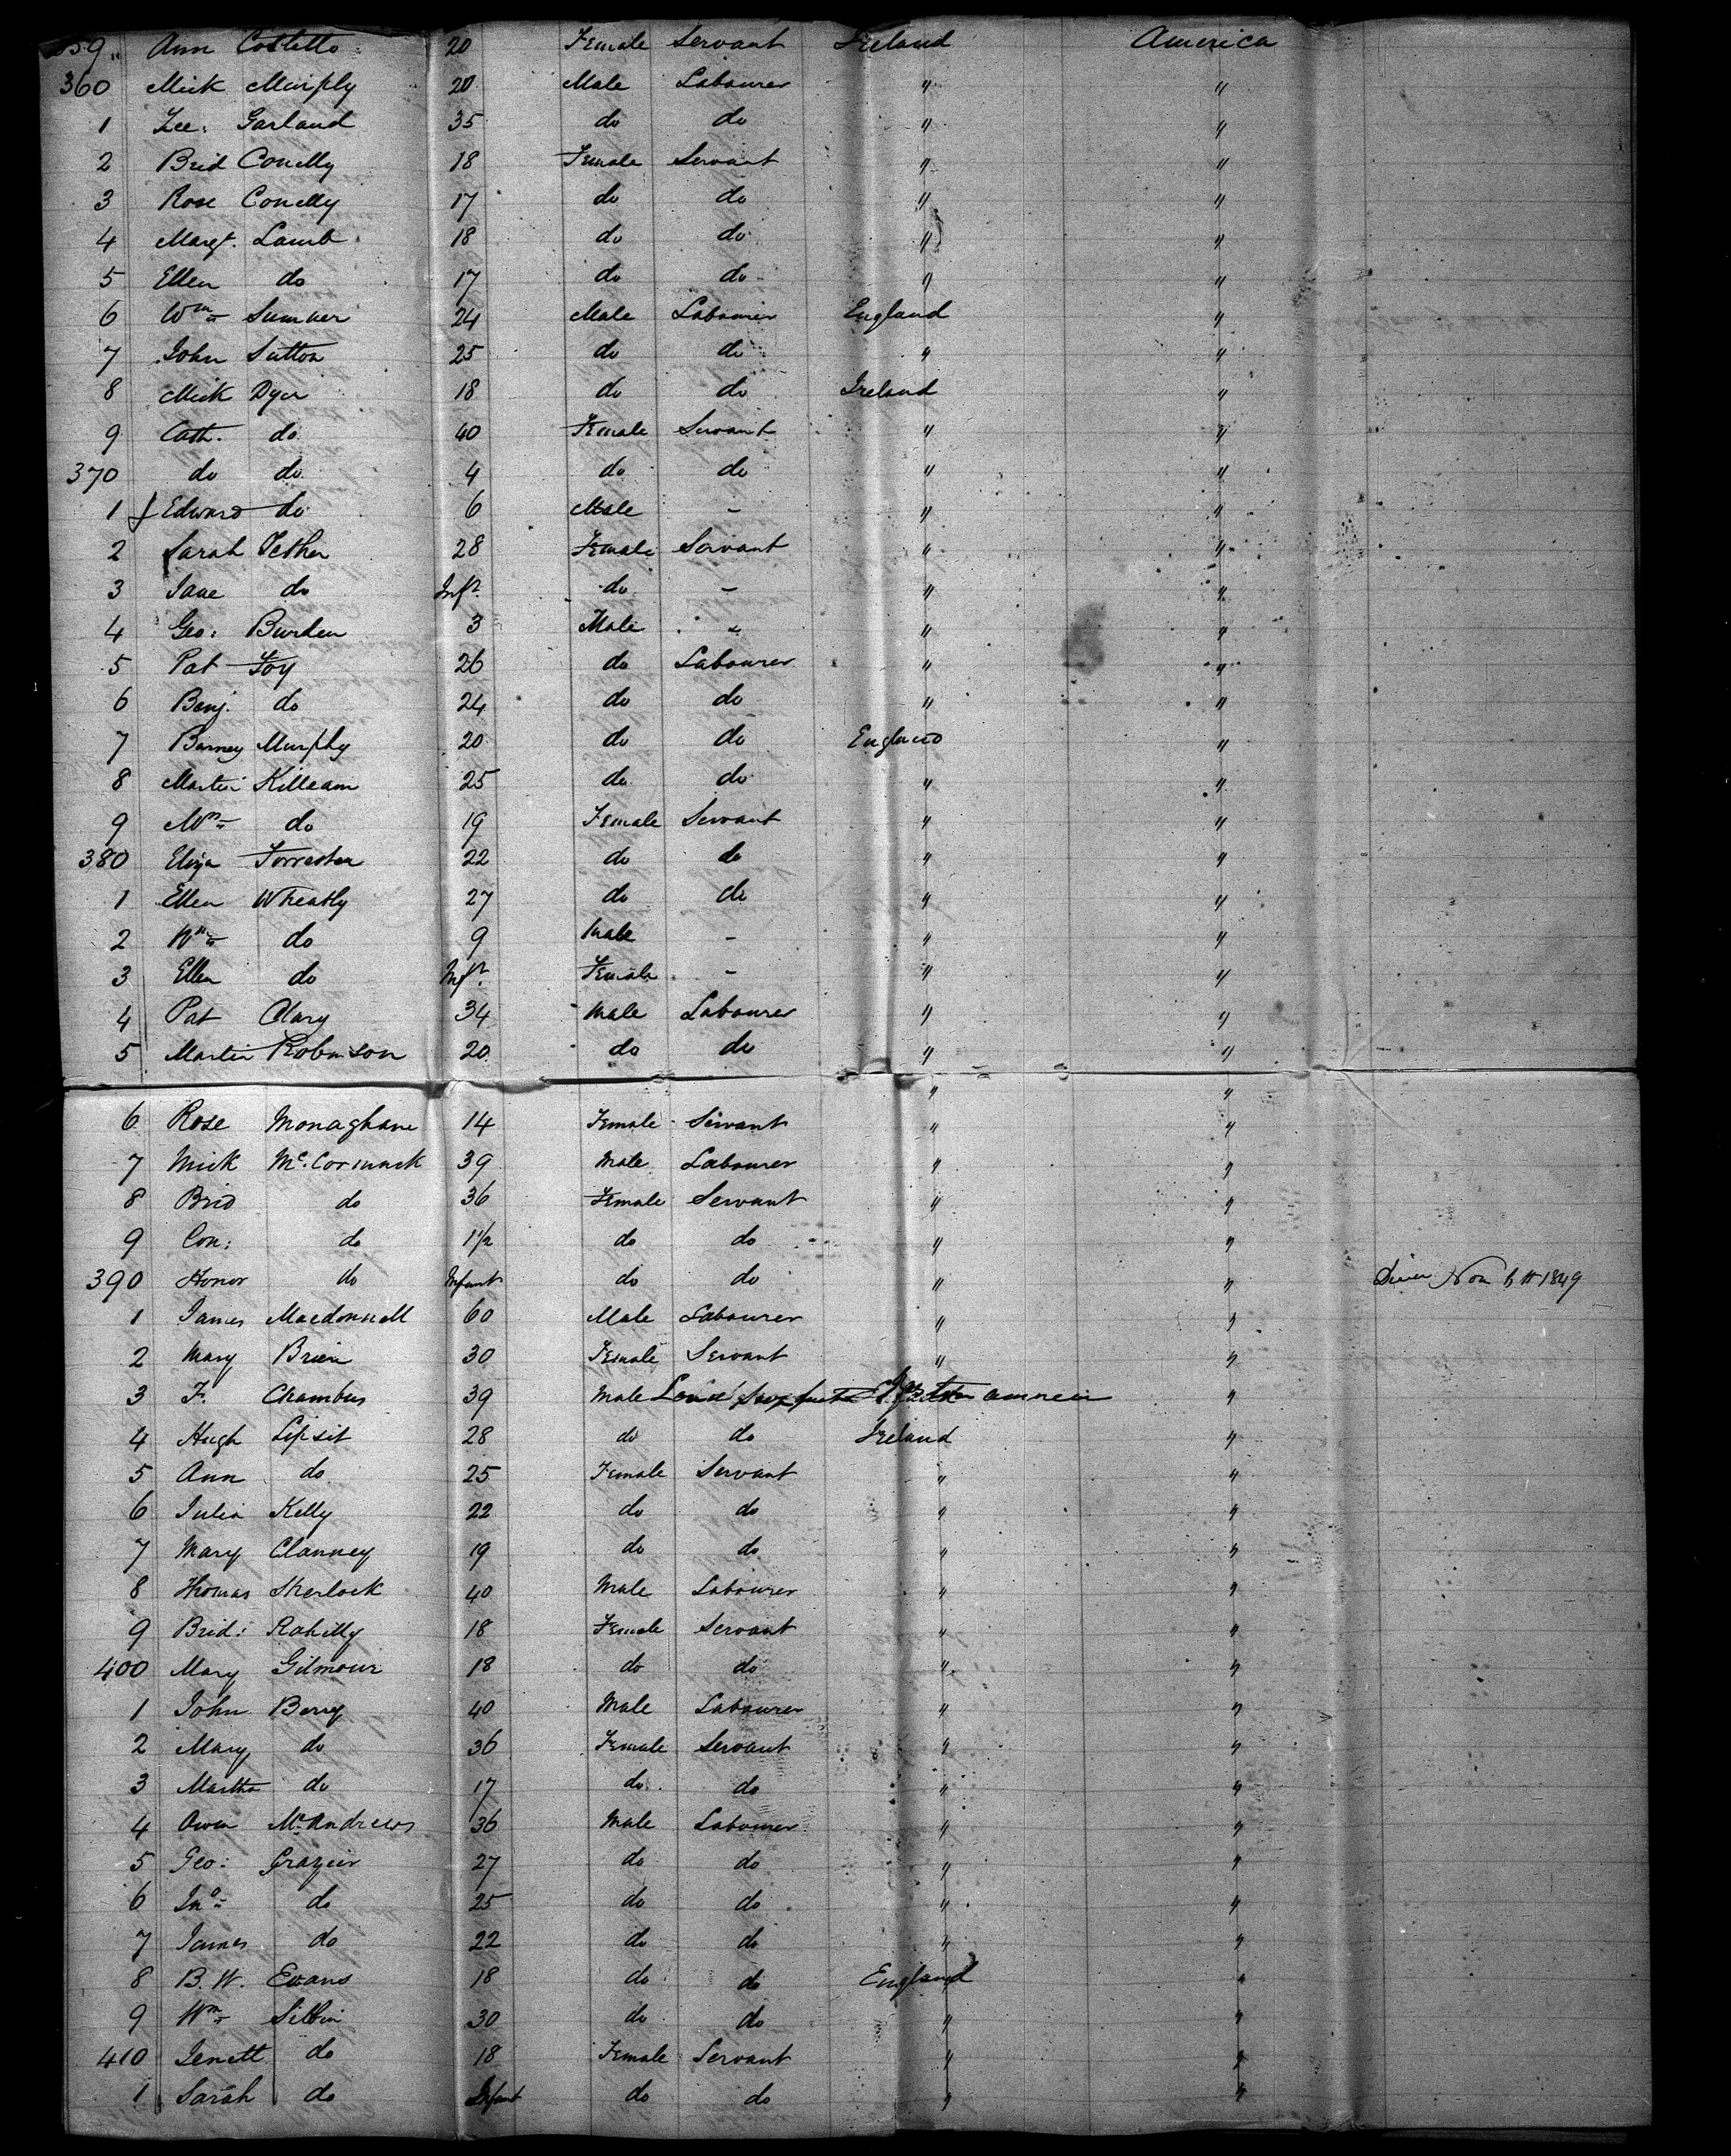 359 " Ann Costello 20 Female Servant Ireland America
360 Mick Murphy 20 Male Labourer " "
1 Garland 35 do do " "
2 Brid Conelly 18 Female Servant " "
3 Rose Conelly 17 do do " "
4 Margt. Lamb 18 do do " "
5 Ellen do 17 do do " "
6 Wm Sumner 24 Male Labourer England "
7 John Sutton 25 do do " "
8 Mick Dyer 18 do do Ireland "
9 Cath. do 40 Female Servant " "
370 do do 4 do do " "
1 Edward do 6 Male - " "
2 Sarah 28 Female Servant " "
3 Jane do Inft do - " "
4 Geo: Burden 3 Male - " "
5 Pat Foy 26 do Labourer " "
6 Benj. do 24 do do " "
7 Barney Murphy 20 do do England "
8 Martin Killeam 25 do do " "
9 do 19 Female Servant " "
380 Eliza Forrester 22 do do " "
1 Ellen Wheatly 27 do do " "
2 Wm do 9 Male - " "
3 Ellen do Inft Female - " "
4 Pat Clary 34 Male Labourer " "
5 Martin Robinson 20 do do " "
" "
6 Rose Monaghane 14 Female Servant " "
7 Mick Mc.Cormack 39 Male Labourer " "
8 Brid do 36 Female Servant " "
9 Con: do 1 1/2 do do " "
390 Honor do Infant do do " " Nov 6th 1849
1 James Macdonnell 60 Male Labourer " "
2 Mary Brien 30 Female Servant " "
3 F. Chambers 39 Male "
4 Hugh Lipsit 28 do do Ireland "
5 Ann do 25 Female Servant " "
6 Julia Kelly 22 do do " "
7 Mary Clanney 19 do do " "
8 Thomas Sherlock 40 Male Labourer " "
9 Brid: Rahilly 18 Female Servant " "
400 Mary Gilmour 18 do do " "
1 John Berry 40 Male Labourer " "
2 Mary do 36 Female Servant " "
3 Martha do 17 do do " "
4 Owen Mc.Andrews 36 Male Labourer " "
5 Geo: Grazier 27 do do " "
6 Jno do 25 do do " "
7 James do 22 do do " "
8 B. W. Evans 18 do do England "
9 Wm 30 do do " "
410 Jenett do 18 Female Servant " "
1 Sarah do Infant do do " "